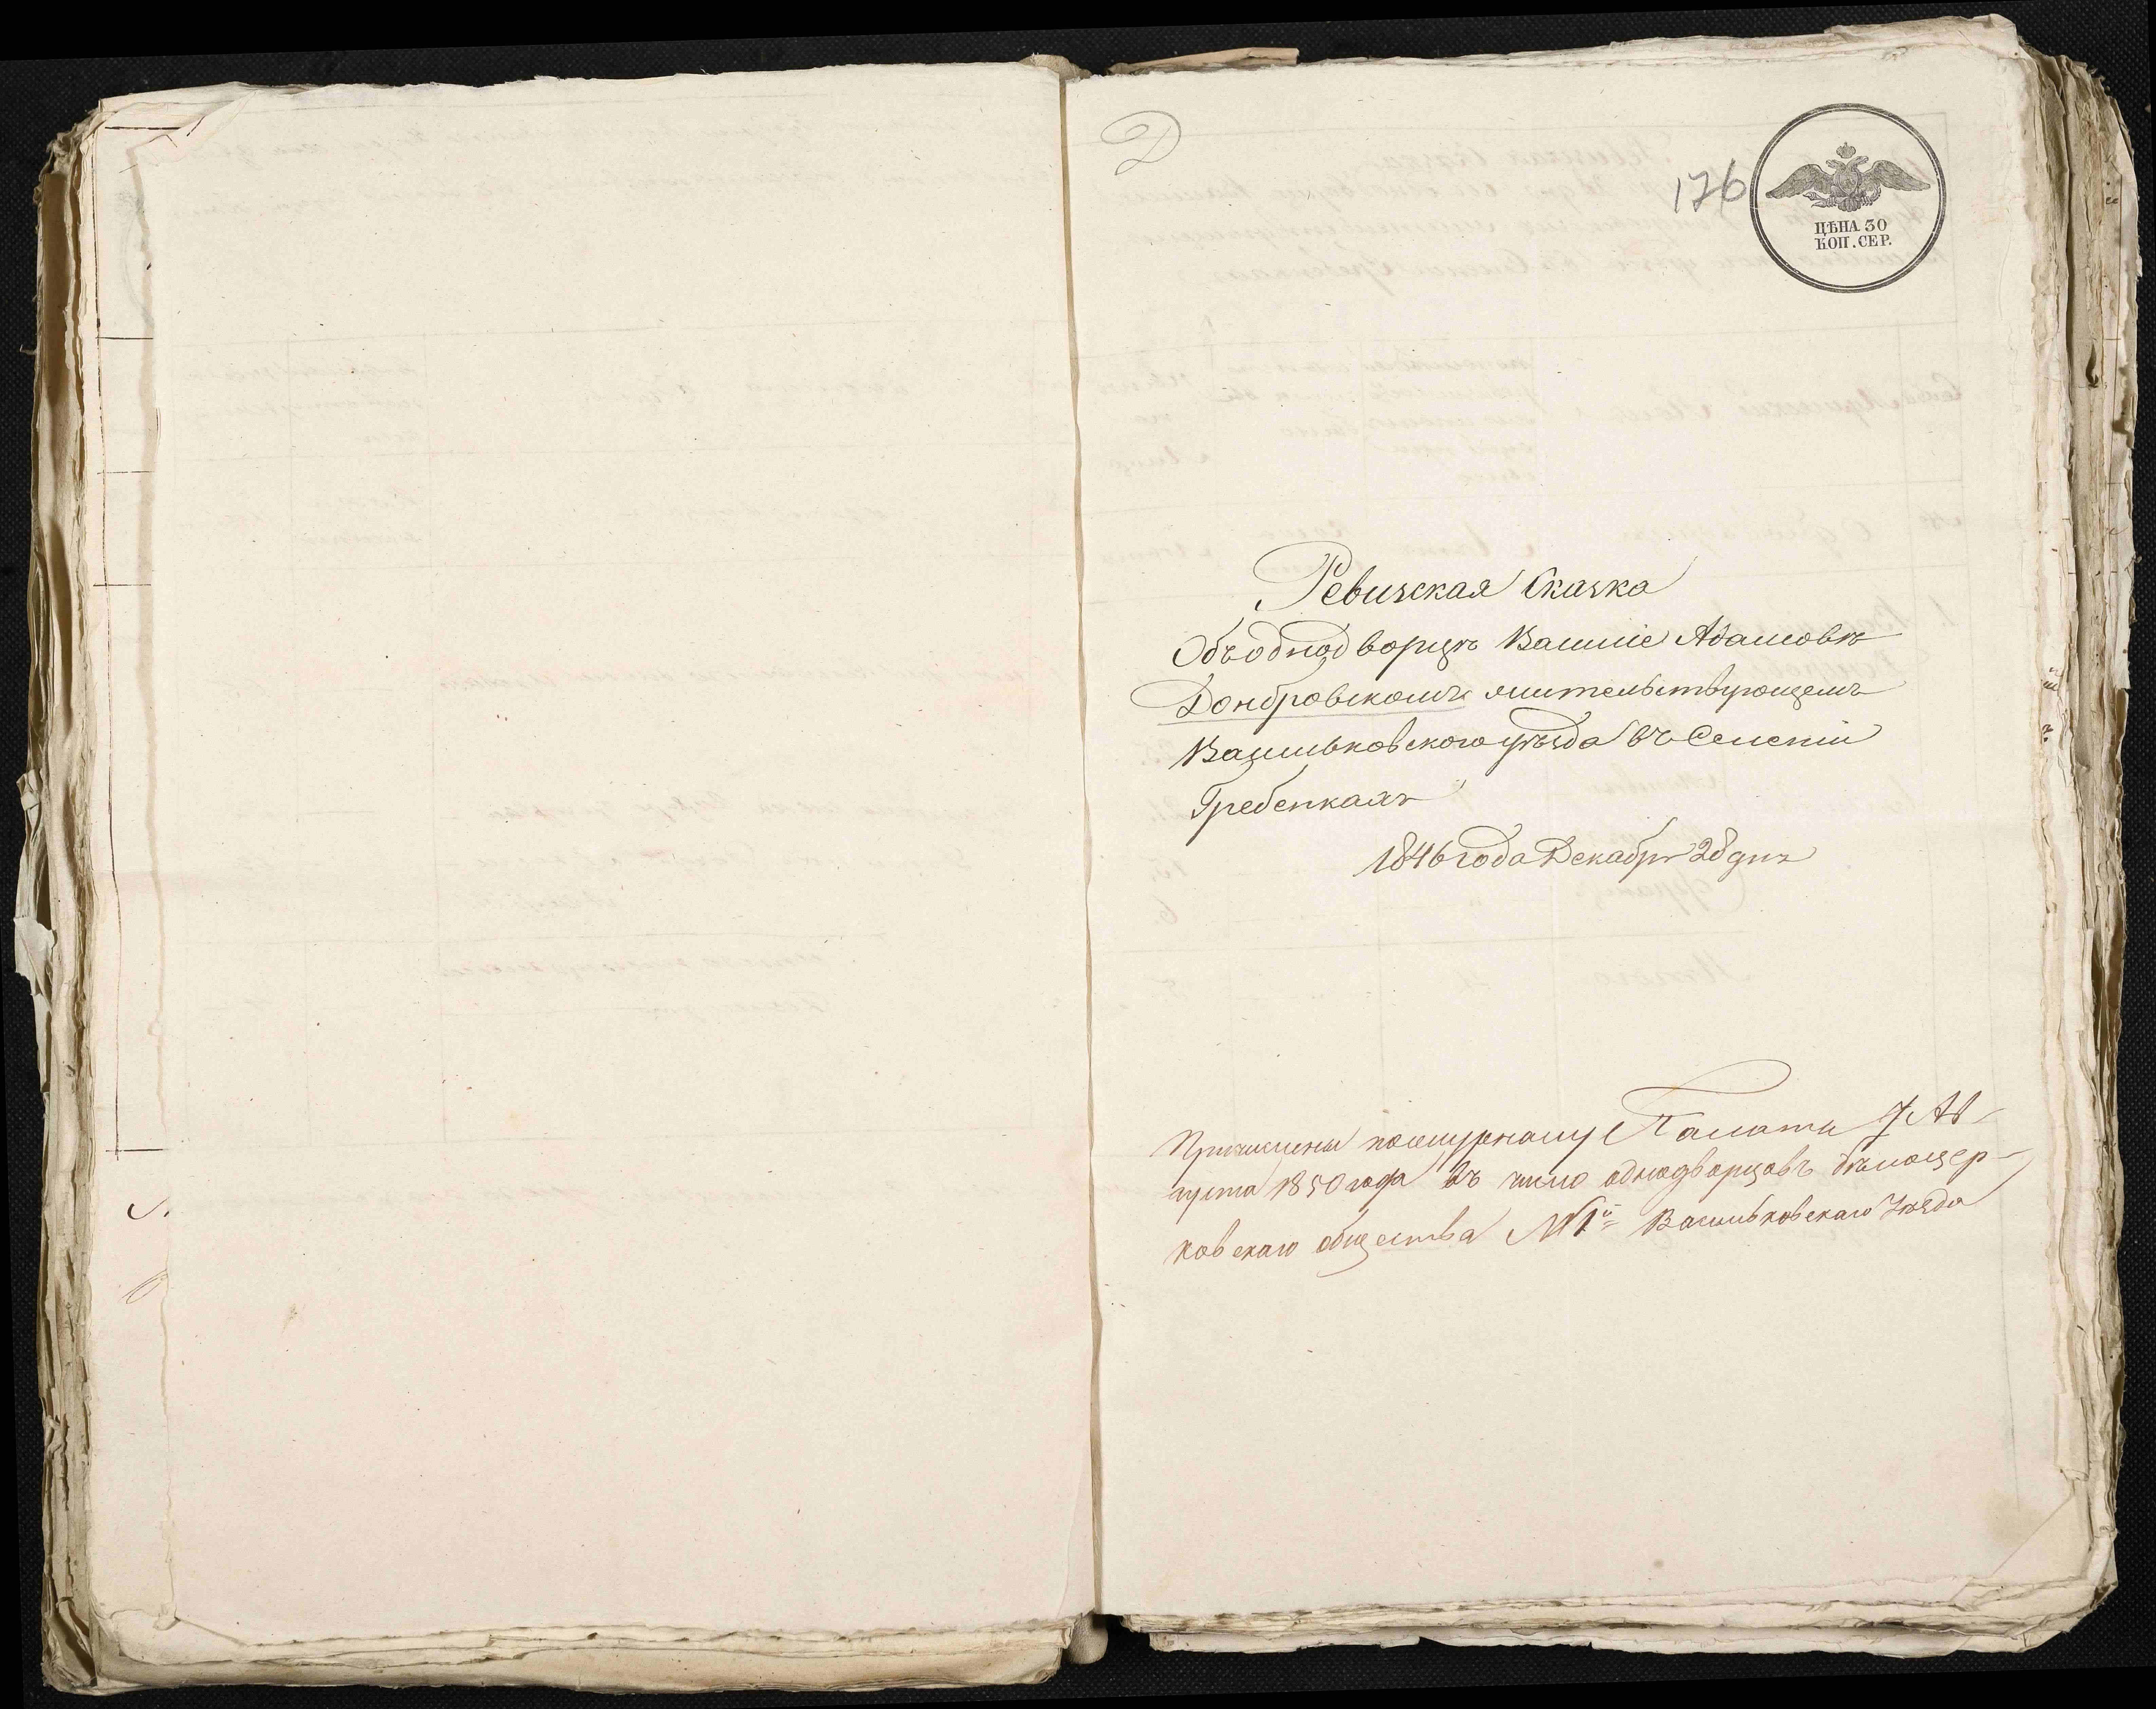 Д
176
ЦѢНА 30
КОП. СЕР.
Ревизская Сказка
Объоднодворцѣ Василіе Адамовѣ
Донбровскомъ жительствующемъ
Васильковского уѣзда въ Селеніи
Гребенкахъ
1846 года Декабря 28 дня
Причислены пожурналу Палаты 7 Ав-
густа 1850 года въ число однодворцовъ бѣлоцер-
ковскаго общества №1й Васильковскаго Уѣзда